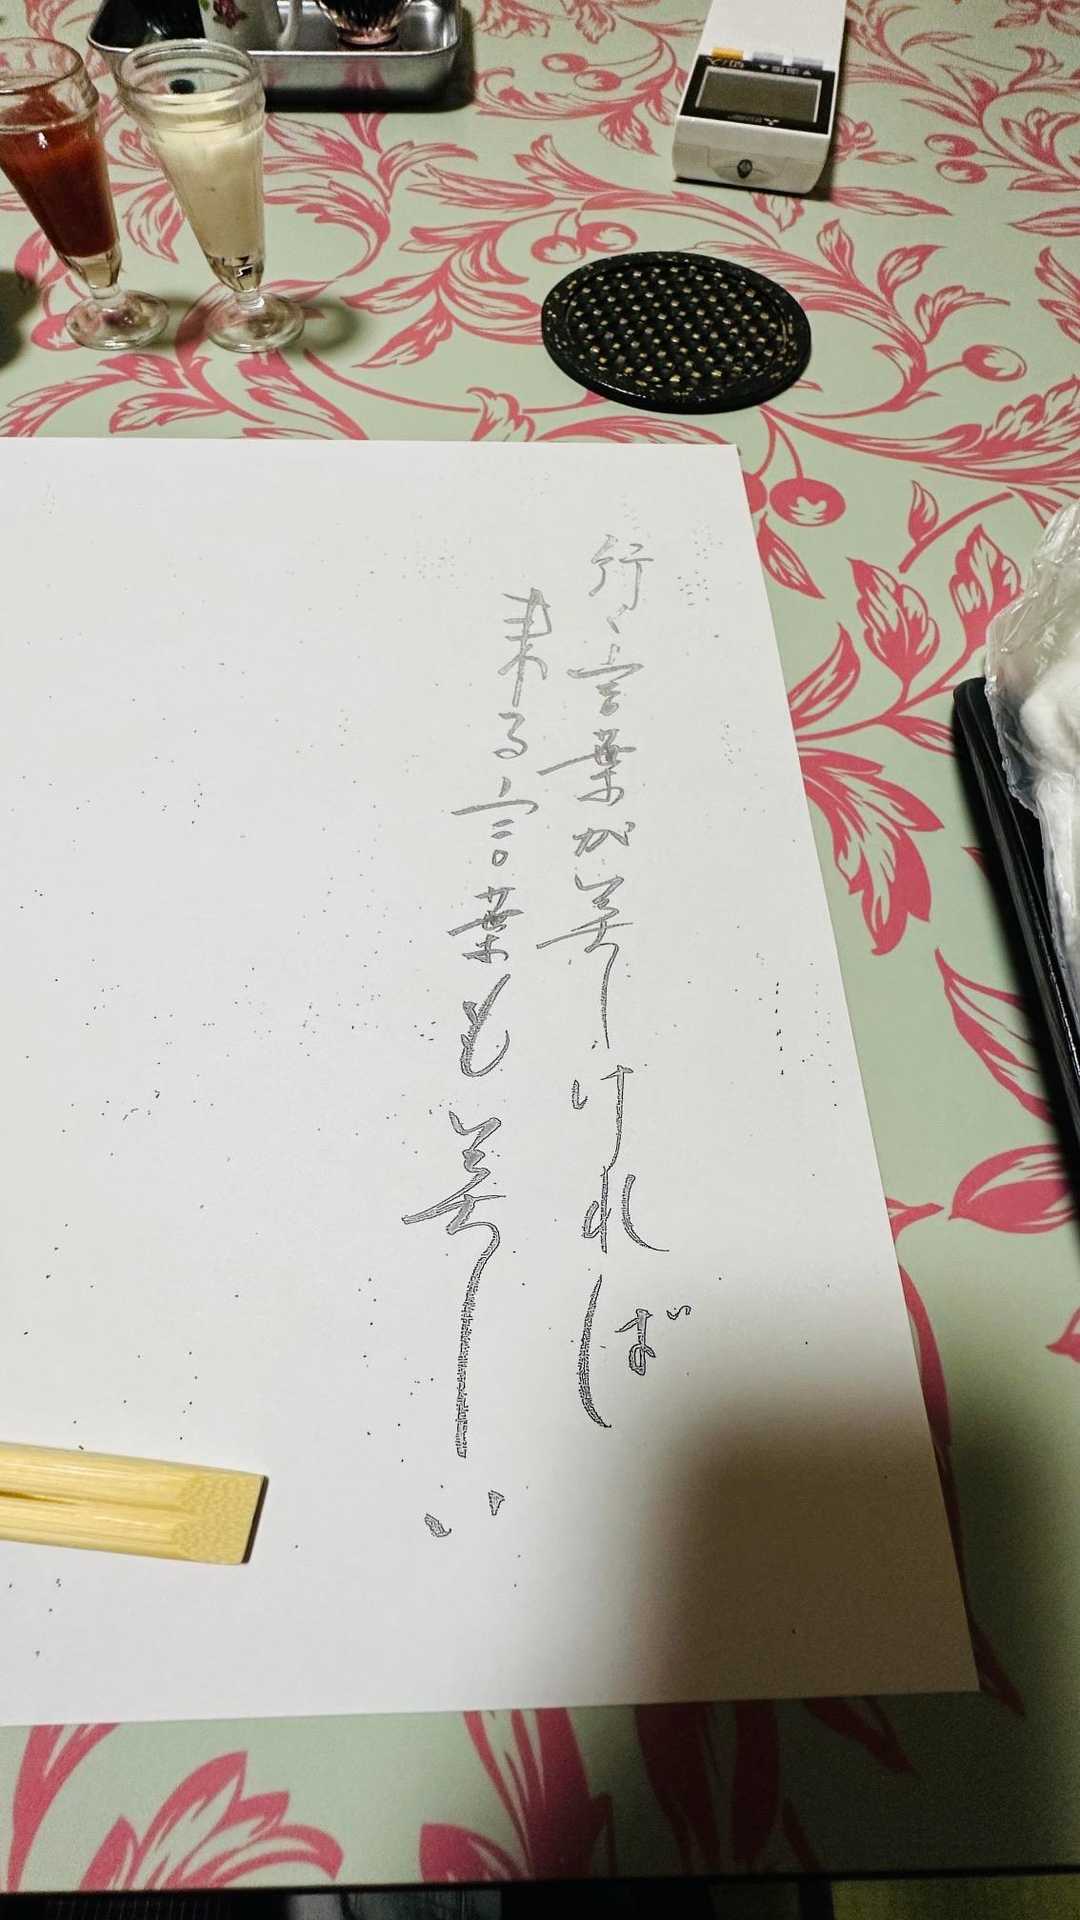 行く言葉が美しければ
来る言葉も美しい